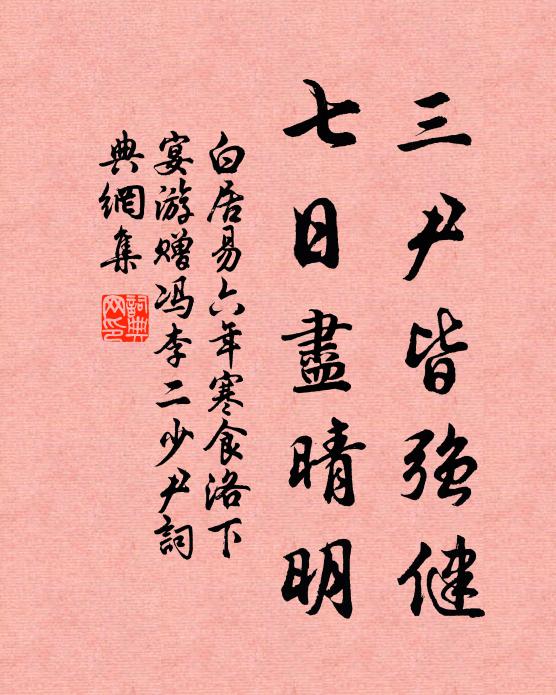 三尹皆强健
七日盡晴明
白居易六年寒食洛下
宴游赠冯李二少尹詞
典網集
詞典
网印